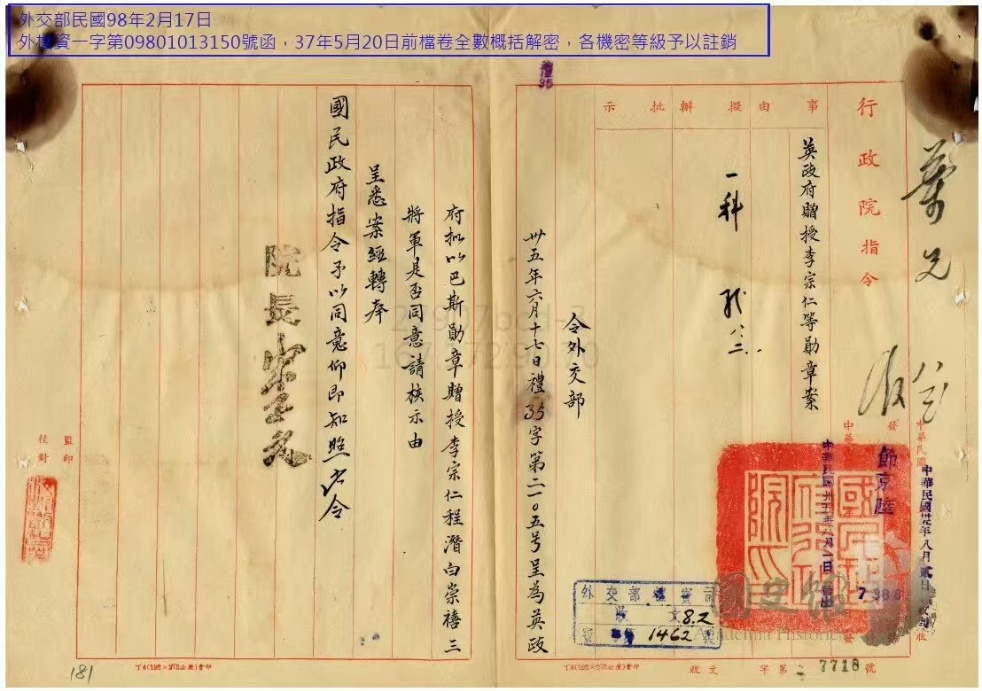 外交部民國98年2月17日
外檔資一字第09801013150號函，37年5月20日前檔卷全數概括解密，各機密等級予以註銷
行政院指令
事由
擬辦
批示
英政府贈授李宗仁等勛章案
一科
令外交部
卅五年六月十七日禮35字第二一〇五号呈為英政
府拟以巴斯勛章贈授李宗仁程潛白崇禧三
將軍是否同意請核示由
呈悉案經轉奉
國民政府指令予以同意仰即知照此令
院長宋子文
監印
校對
節京陸
7386
中華民國卅五年八月貳日
外交部機要
收文
8.2
1462
國史館
Academia Historica
收文 字第 7718 號
禮35
181